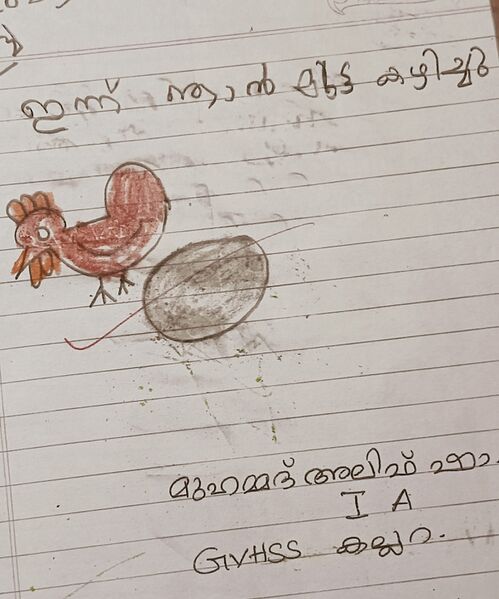 ഇന്ന് ഞാൻ മുട്ട കഴിച്ചു
മുഹമ്മദ് അലിഫ് ഷാ.
I A
GVHSS കല്ലറ.